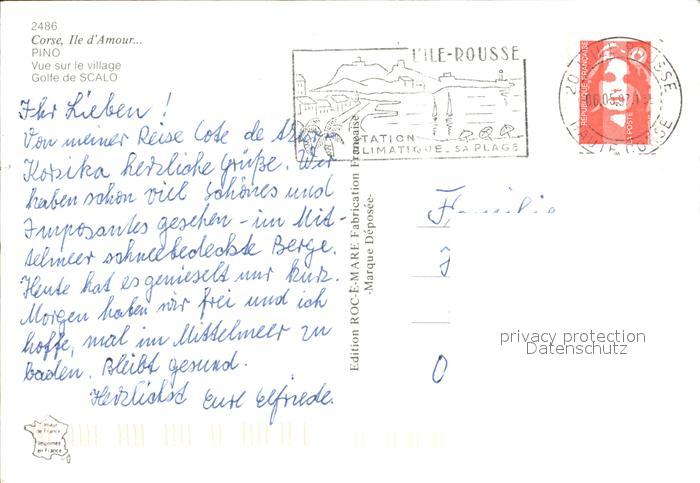 2486
Corse, Ile d'Amour...
PINO
Vue sur le village
Golfe de SCALO
Ihr Lieben !
Von meiner Reise Cote de Azur -
Korsika herzliche Grüße. Wir
haben schon viel Schönes und
Imposantes gesehen - im Mit-
telmeer schneebedeckte Berge.
Heute hat es genieselt nur kurz.
Morgen haben wir frei und ich
hoffe, mal im Mittelmeer zu
baden. Bleibt gesund.
Herzlichst Eure Elfriede.
Edition ROC-E-MARE Fabrication Française
-Marque Déposée-
L'ILE-ROUSSE
STATION
CLIMATIQUE. SA PLAGE
REPUBLIQUE FRANÇAISE
LA POSTE
20 L'ILE ROUSSE
HAUTE CORSE
Familie
privacy protection
Datenschutz
Imprimée
en France